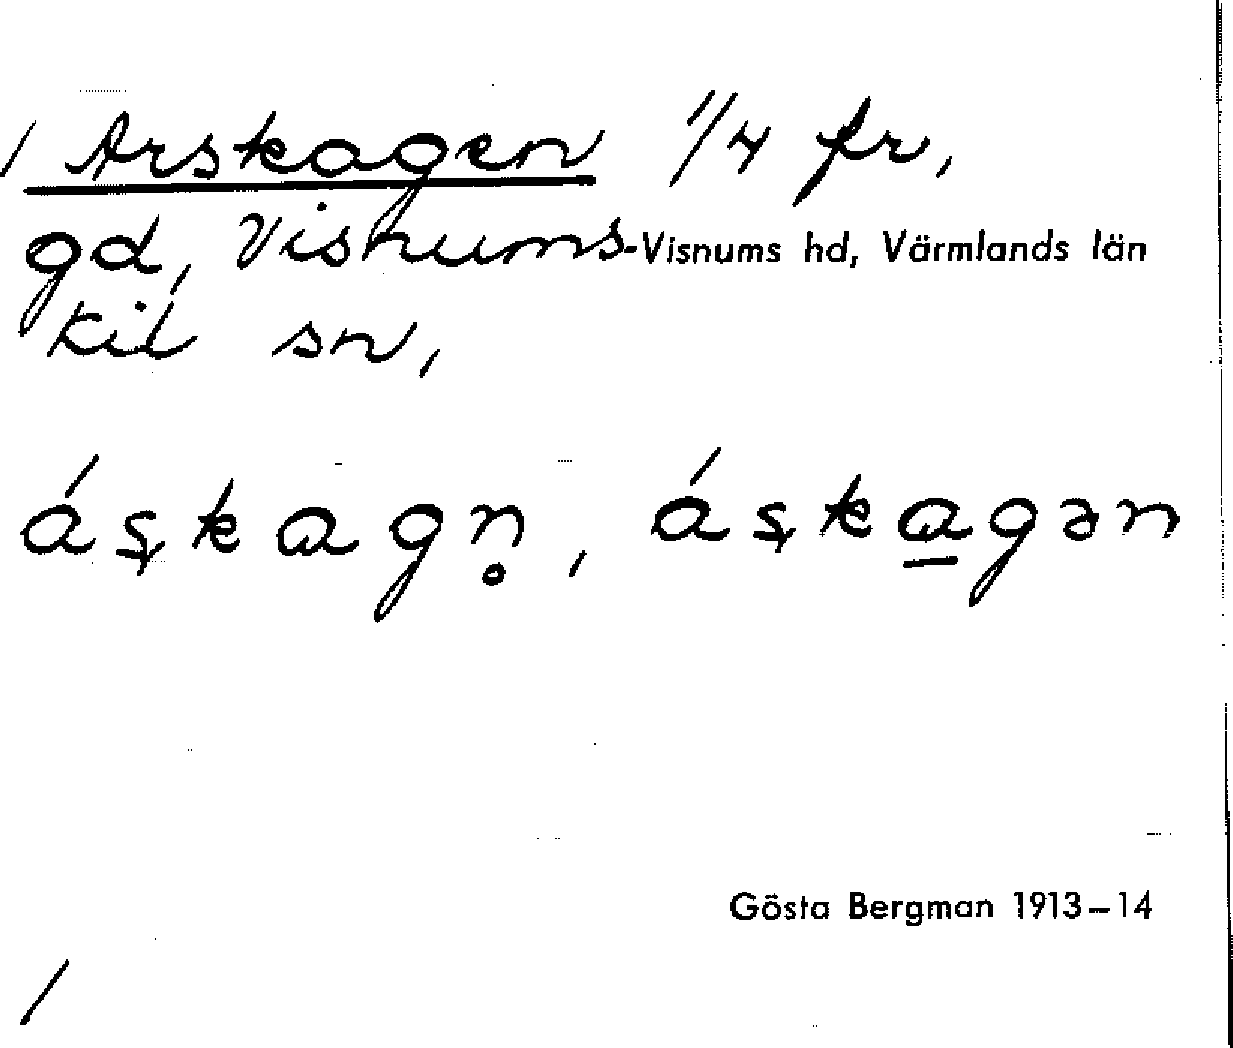 / Arskagen 1/4 fr,
gd, Visnums- Visnums hd, Värmlands län
kil sn,
áʂkagn̥, áʂka̲gən
Gösta Bergman 1913–14
/